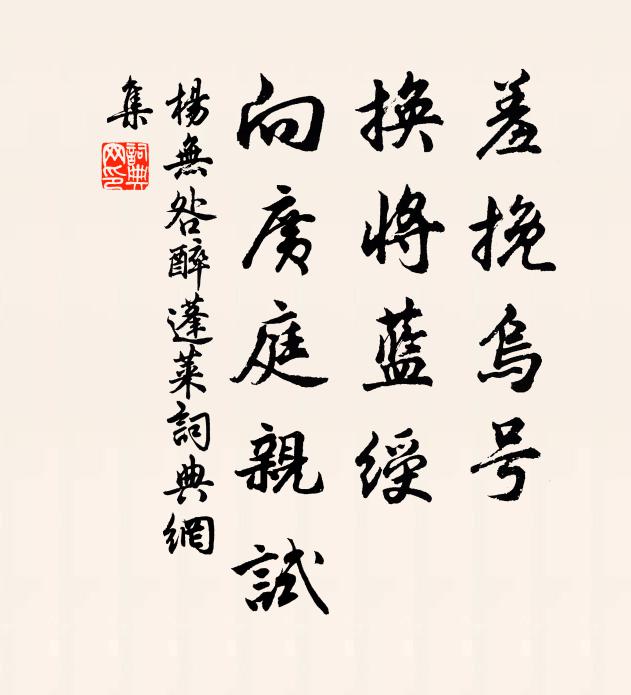 羞挽烏号
換将藍綬
向廣庭親試
楊無咎醉蓬萊詞典網
集
詞典網印